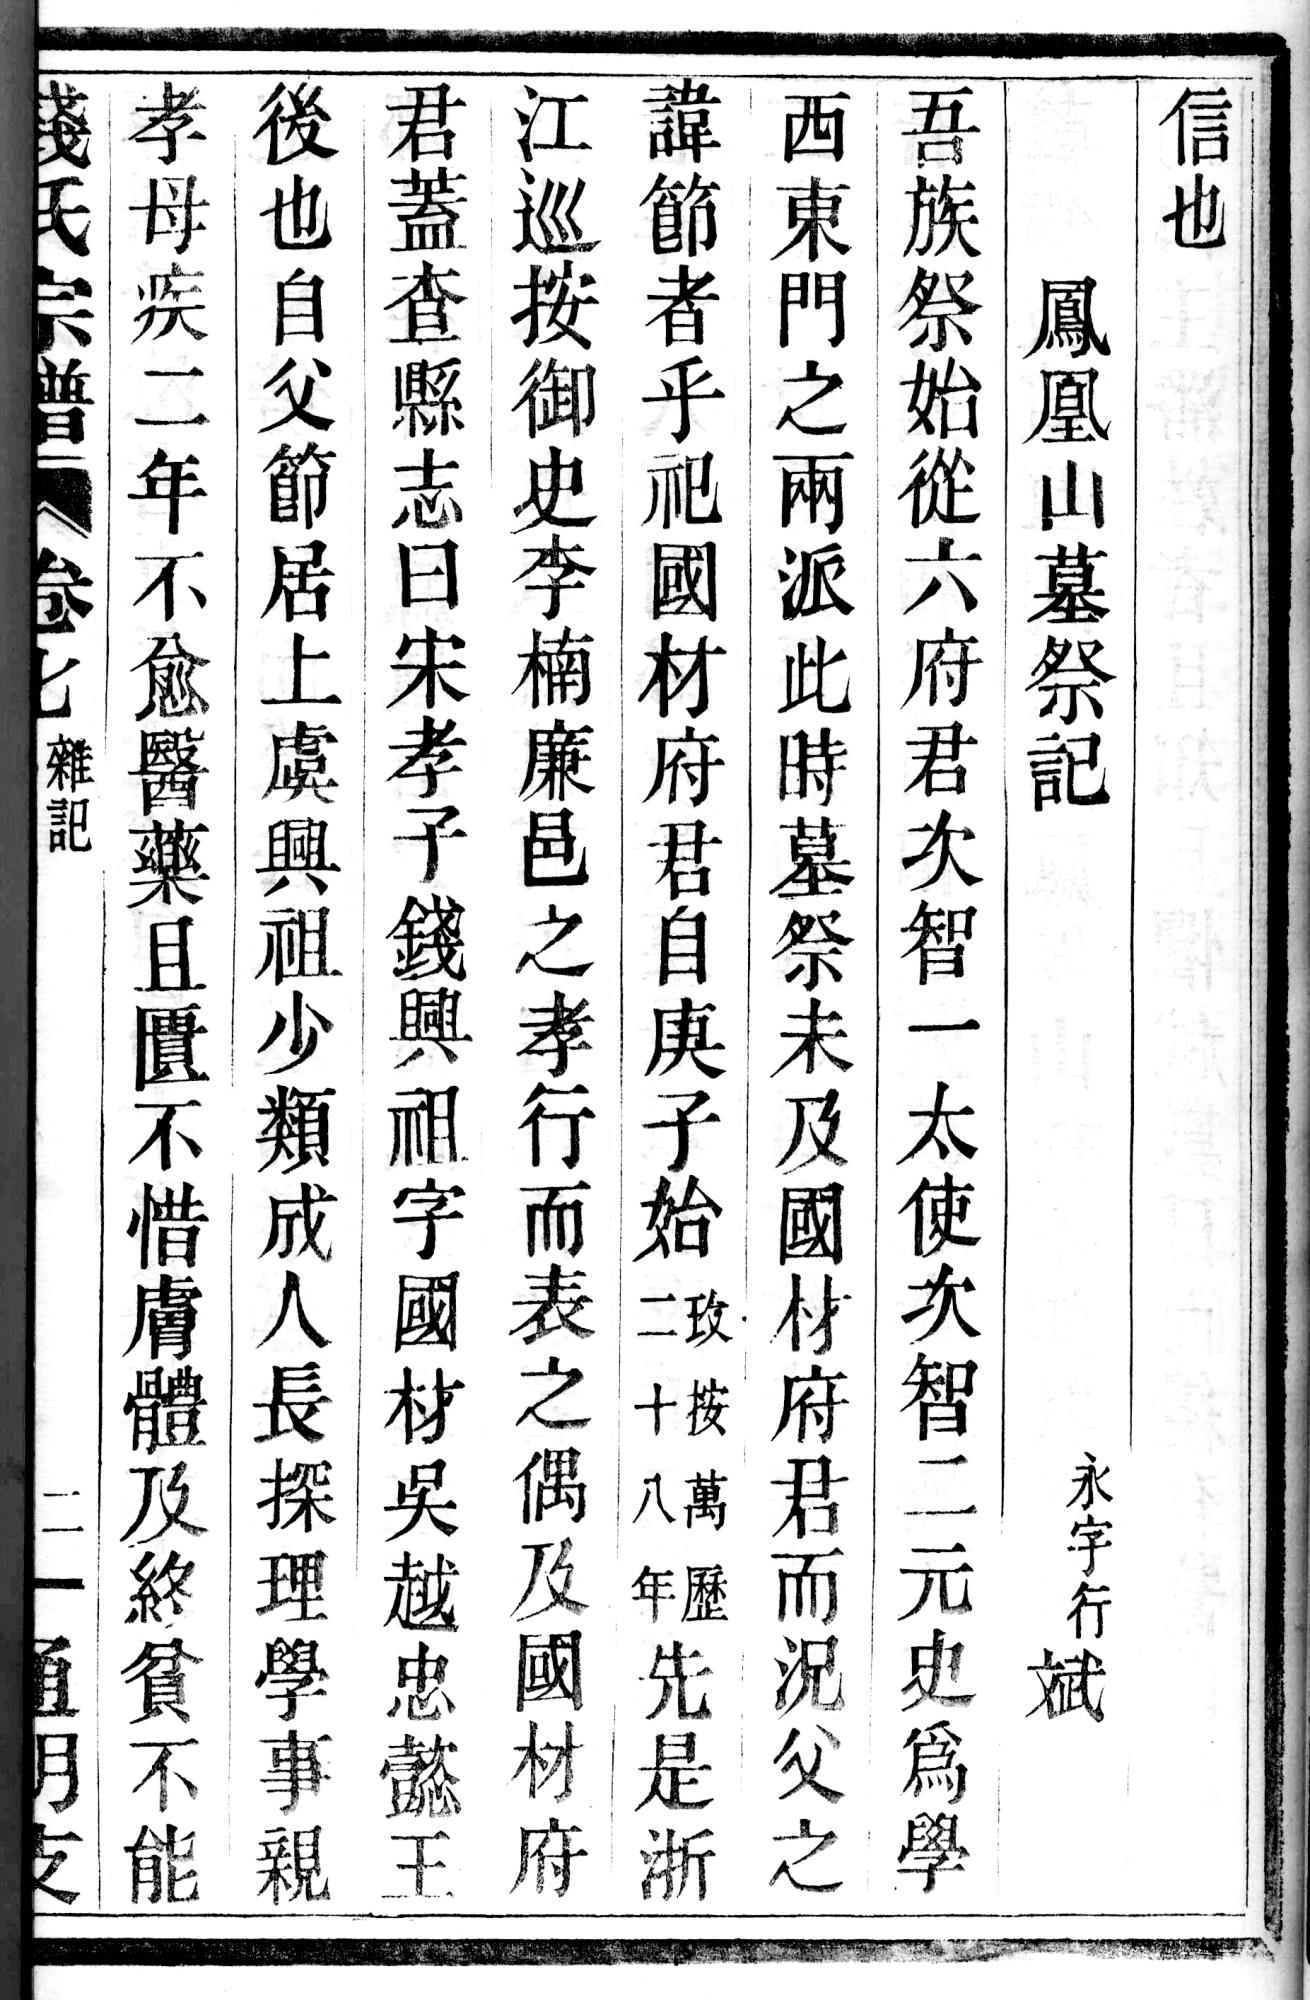 信也
鳳凰山墓祭記
永字行斌
吾族祭始從六府君次智一太使次智二元史爲學
西東門之兩派此時墓祭未及國材府君而況父之
諱節者乎祀國材府君自庚子始攷按萬歷二十八年先是浙
江巡按御史李楠廉邑之孝行而表之偶及國材府
君蓋查縣志曰宋孝子錢興祖字國材吳越忠懿王
後也自父節居上虞興祖少類成人長探理學事親
孝母疾二年不愈醫藥且匱不惜膚體及終貧不能
錢氏宗譜 卷七 雜記 二一 通明支